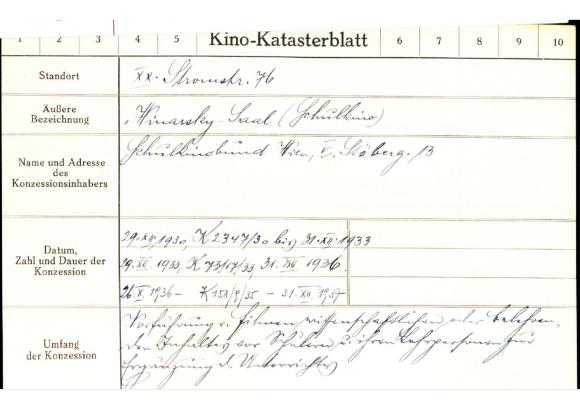 1 2 3 4 5 Kino-Katasterblatt 6 7 8 9 10
Standort XX. Stromstr. 76
Äußere Bezeichnung Winarsky-Saal (Schulkino)
Name und Adresse des Konzessionsinhabers Schulkinobund Wien, V. Stöberg. 13
Datum, Zahl und Dauer der Konzession
29.XII.1930, K 2347/30 bis 31.XII.1933
29.XII.1933, K 73/17/33, 31.XII 1936.
26.X.1936 – K 158/9/35 – 31.XII.1937
Umfang der Konzession
Vorführung v. Filmen, wissenschaftlichen oder belehren-
den Inhaltes vor Schülern u. ihren Lehrpersonen zur
Ergänzung d. Unterrichtes